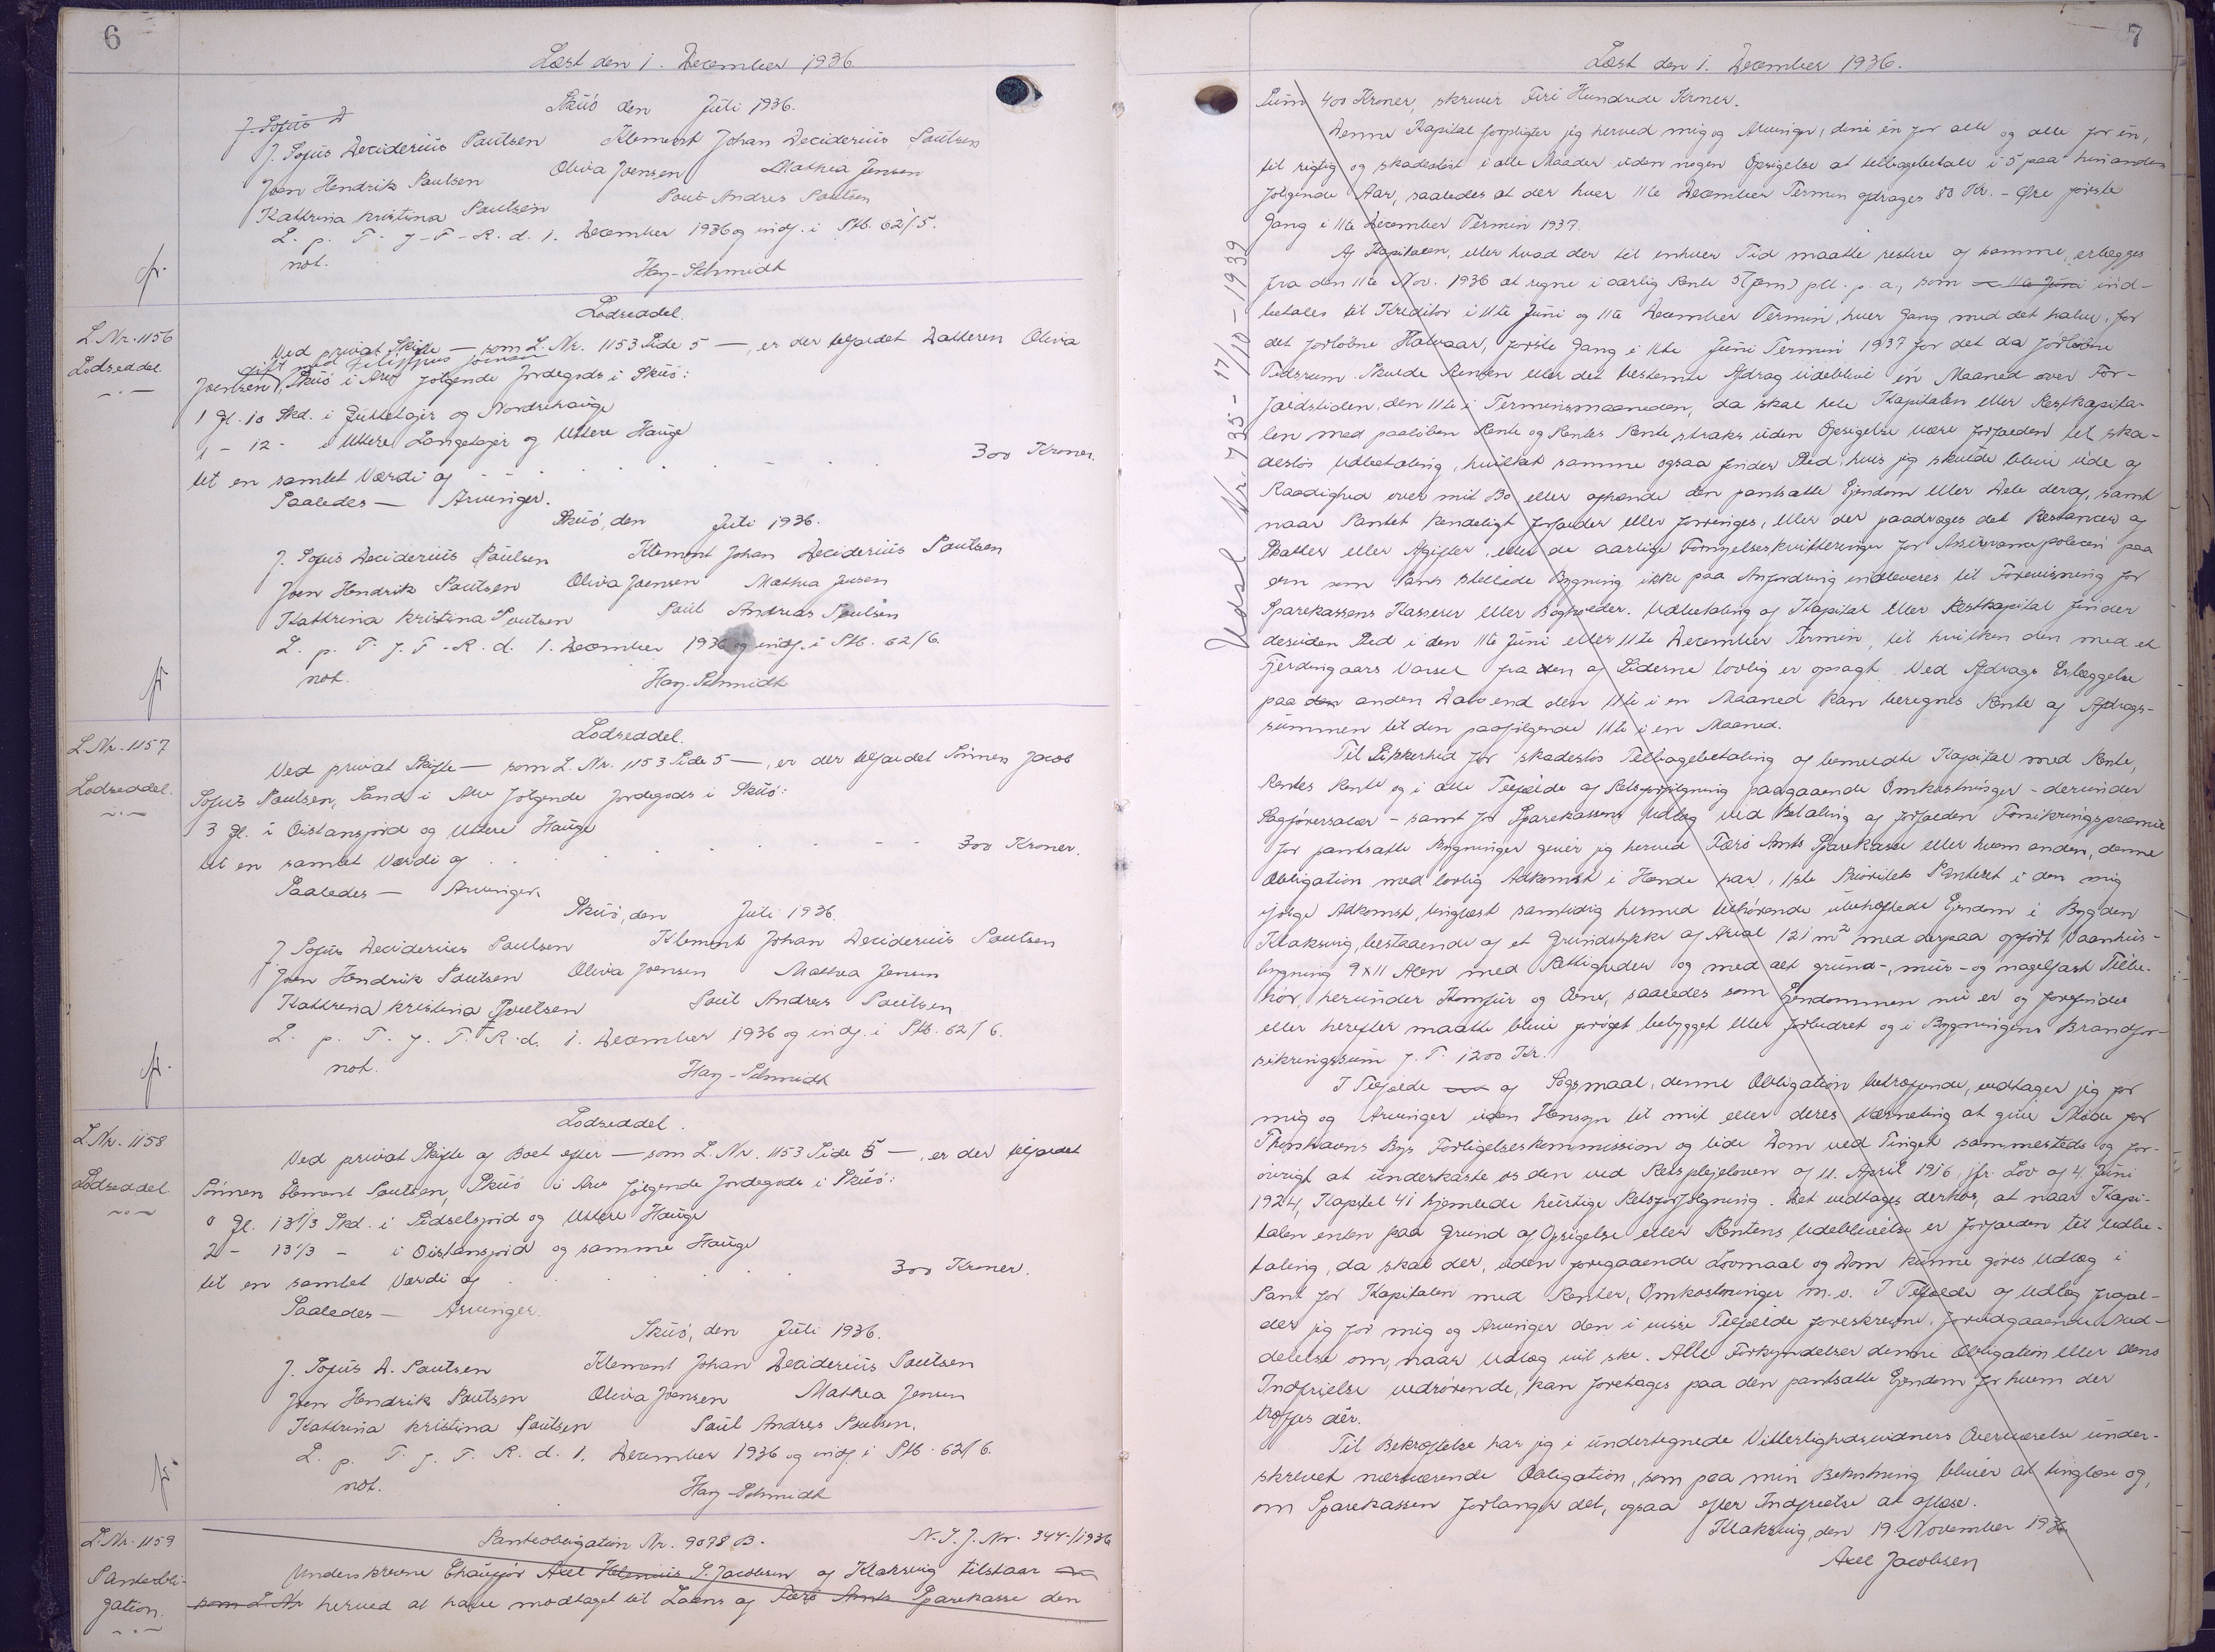 6
Læst den 1. December 1936.
Skuö den Juli 1936.
J. Sofus D
J. Sofus Deciderius Poulsen Klement Johan Deciderius Poulsen
Joen Hendrik Poulsen Oliva Joensen Mathea Jensen
Kathrina Kristina Poulsen Poul Andres Poulsen
L. p. T. f. F. R. d. 1. December 1936 og indf. i Ptb. 62/5.
not.
Hay-Schmidt
L.Nr. 1156
Lodseddel
Lodseddel.
Ved privat Skifte — som L. Nr. 1153 Side 5 —, er der tilfaldet Datteren Oliva
gift med Filippus Joensen
Joensen, Skuö i Arv følgende Jordegods i Skuö:
1 Gl. 10 Skd. i og Nordrihauge
1 - 12 - i Uttere Langetojer og Uttere Hauge
til en samlet Værdi af 300 Kroner.
Saaledes — Arvinger.
Skuö, den Juli 1936.
J. Sofus Deciderius Poulsen Klement Johan Deciderius Poulsen
Joen Hendrik Poulsen Oliva Joensen Mathea Jensen
Kathrina Kristina Poulsen Poul Andreas Poulsen
L. p. T. f. F. R. d. 1. December 1936 og indf. i Ptb. 62/6
not.
Hay-Schmidt
L.Nr. 1157
Lodseddel.
Lodseddel.
Ved privat Skifte — som L. Nr. 1153 Side 5 —, er der tilfaldet Sønnen Jacob
Sofus Poulsen, Sand i Arv følgende Jordegods i Skuö:
3 Gl. i Oistansjord og Uttere Hauge
til en samlet Værdi af 300 Kroner.
Saaledes — Arvinger.
Skuö, den Juli 1936.
J. Sofus Deciderius Poulsen Klement Johan Deciderius Poulsen
Joen Hendrik Poulsen Oliva Joensen Mathea Jensen
Kathrina Kristina Poulsen Poul Andres Poulsen
L. p. T. f. F. R. d. 1. December 1936 og indf. i Ptb. 62/6.
not.
Hay-Schmidt
L.Nr. 1158
Lodseddel
Lodseddel.
Ved privat Skifte af Boet efter — som L. Nr. 1153 Side 5 —, er der tilfaldet
Sønnen Klement Poulsen, Skuö i Arv følgende Jordegods i Skuö:
0 Gl. 13 1/3 Skd. i Sidselsjord og Uttere Hauge
2 - 13 1/3 - i Oistansjord og samme Hauge
til en samlet Værdi af 300 Kroner.
Saaledes — Arvinger.
Skuö, den Juli 1936.
J. Sofus D. Poulsen Klement Johan Deciderius Poulsen
Joen Hendrik Poulsen Oliva Joensen Mathea Jensen
Kathrina Kristina Poulsen Poul Andres Poulsen.
L. p. T. f. F. R. d. 1. December 1936 og indf. i Ptb. 62/6.
not.
Hay-Schmidt
L.Nr. 1159
Panteobli-
gation.
Panteobligation Nr. 9078 B. N.I.J. Nr. 344-/1936
Underskrevne Chauffør Axel S. Jacobsen af Klaksvig tilstaar
som L. Nr herved at have modtaget til Laans af Færø Amts Sparekasse den
7
Læst den 1. December 1936.
Udsl. Nr. 735 - 17/10 - 1939
Sum 400 Kroner, skriver Firi Hundrede Kroner.
Denne Kapital forpligter jeg herved mig og Arvinger, dene én for alle og alle for én,
til rigtig og skadesløst i alle Maader uden nogen Opsigelse at tilbagebetale i 5 paa hinanden
følgende Aar, saaledes at der hver 11te December Termin afdrages 80 Kr. - Øre første
Gang i 11te December Termin 1937.
Af Kapitalen, eller hvad der til enhver Tid maatte restere af samme, erlægges
fra den 11te Nov. 1936 at regne i aarlig Rente 5 (fem) pCt. p. a., som 11te Juni ind-
betales til Kreditor i 11te Juni og 11te December Termin, hver Gang med det halve, for
det forløbne Halvaar, første Gang i 11te Juni Termin 1937 for det da forløbne
Tidsrum. Skulde Renten eller det bestemte Afdrag udeblive én Maaned over For-
faldstiden, den 11te i Terminsmaaneden, da skal hele Kapitalen eller Restkapita-
len med paaløben Rente og Rentes Rente straks uden Opsigelse være forfalden til ska-
desløs Udbetaling, hvilket samme ogsaa finder Sted, hvis jeg skulde blive ude af
Raadighed over mit Bo eller afhænde den pantsatte Ejendom eller Dele deraf, samt
naar Pantet kendeligt forfalder eller forringes, eller der paadrages det Restancer af
Skatter eller Afgifter, eller de aarlige Fornyelseskvitteringer for Assurancepolicen paa
den som Pant stillede Bygning ikke paa Anfordring indleveres til Forevisning for
Sparekassens Kasserer eller Bogholder. Udbetaling af Kapital eller Restkapital finder
desuden Sted i den 11te Juni eller 11te December Termin, til hvilken den med et
Fjerdingaars Varsel fra den af Siderne lovlig er opsagt. Ved Afdrags Erlæggelse
paa den anden Dato end den 11te i en Maaned kan beregnes Rente af Afdrags-
summen til den paafølgende 11te i en Maaned.
Til Sikkerhed for skadesløs Tilbagebetaling af bemeldte Kapital med Rente,
Rentes Rente og i alle Tilfælde af Retsforfølgning paagaaende Omkostninger - derunder
Sagførersalær - samt for Sparekassens Udlæg ved Betaling af forfalden Forsikringspræmie
for pantsatte Bygninger giver jeg herved Færø Amts Sparekasse eller hvem anden, denne
Obligation med lovlig Adkomst i Hænde har, 1ste Prioritets Panteret i den mig
ifølge Adkomst, tinglæst samtidig hermed tilhørende ubehæftede Ejendom i Bygden
Klaksvig, bestaaende af et Grundstykke af Areal 121 m² med derpaa opført Vaanhus-
bygning 9 x 11 Alen med Rettigheder og med alt grund-, mur- og nagelfast Tilbe-
hør, herunder Komfur og Ovne, saaledes som Ejendommen nu er og forefindes
eller herefter maatte blive forøget bebygget eller forbedret og i Bygningens Brandfor-
sikringssum f. T. 1200 Kr.
I Tilfælde af Søgsmaal, denne Obligation betræffende, vedtager jeg for
mig og Arvinger uden Hensyn til mit eller deres Værneting at give Møde for
Thorshavns Bys Forligelseskommission og lide Dom ved Tinget sammesteds og for-
øvrigt at underkaste os den ved Retsplejeloven af 11. April 1916, jfr. Lov af 4. Juni
1924, Kapitel 41 hjemlede hurtige Retsforfølgning. Det vedtages derhos, at naar Kapi-
talen enten paa Grund af Opsigelse eller Rentens Udeblivelse er forfalden til Udbe-
taling, da skal der, uden foregaaende Lovmaal og Dom kunne gøres Udlæg i
Pant for Kapitalen med Renter, Omkostninger m.v. I Tilfælde af Udlæg frafal-
der jeg for mig og Arvinger den i visse Tilfælde foreskrevne, forudgaaende Med-
delelse om, naar Udlæg vil ske. Alle Forkyndelser denne Obligation eller dens
Indfrielse vedrørende, kan foretages paa den pantsatte Ejendom for hvem der
træffes dér.
Til Bekræftelse har jeg i undertegnede Vitterlighedsvidners Overværelse under-
skrevet nærværende Obligation, som paa min Bekostning bliver at tinglæse og,
om Sparekassen forlanger det, ogsaa efter Indfrielse at aflæse.
Klaksvig, den 19. November 1936
Axel Jacobsen